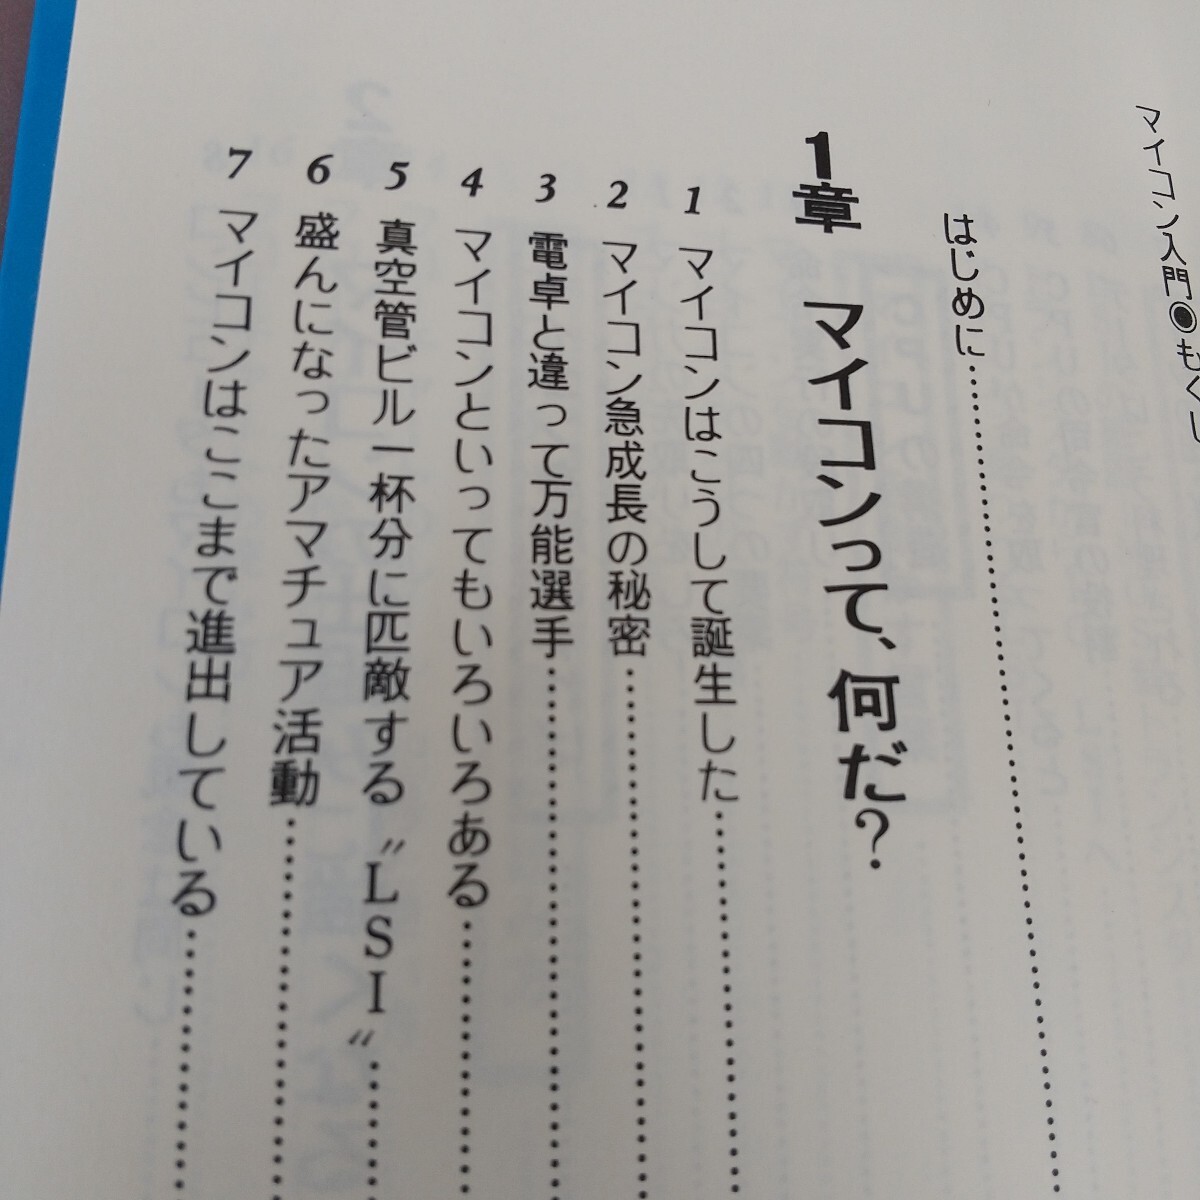 マイコン入門◉もくじ
はじめに
1章 マイコンって、何だ?
1 マイコンはこうして誕生した
2 マイコン急成長の秘密
3 電卓と違って万能選手
4 マイコンといってもいろいろある
5 真空管ビル一杯分に匹敵する〝LSI〟
6 盛んになったアマチュア活動
7 マイコンはここまで進出している